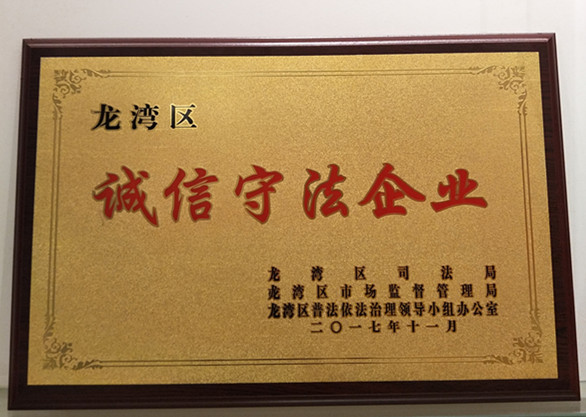 龙湾区
诚信守法企业
龙湾区司法局
龙湾区市场监督管理局
龙湾区普法依法治理领导小组办公室
二〇一七年十一月